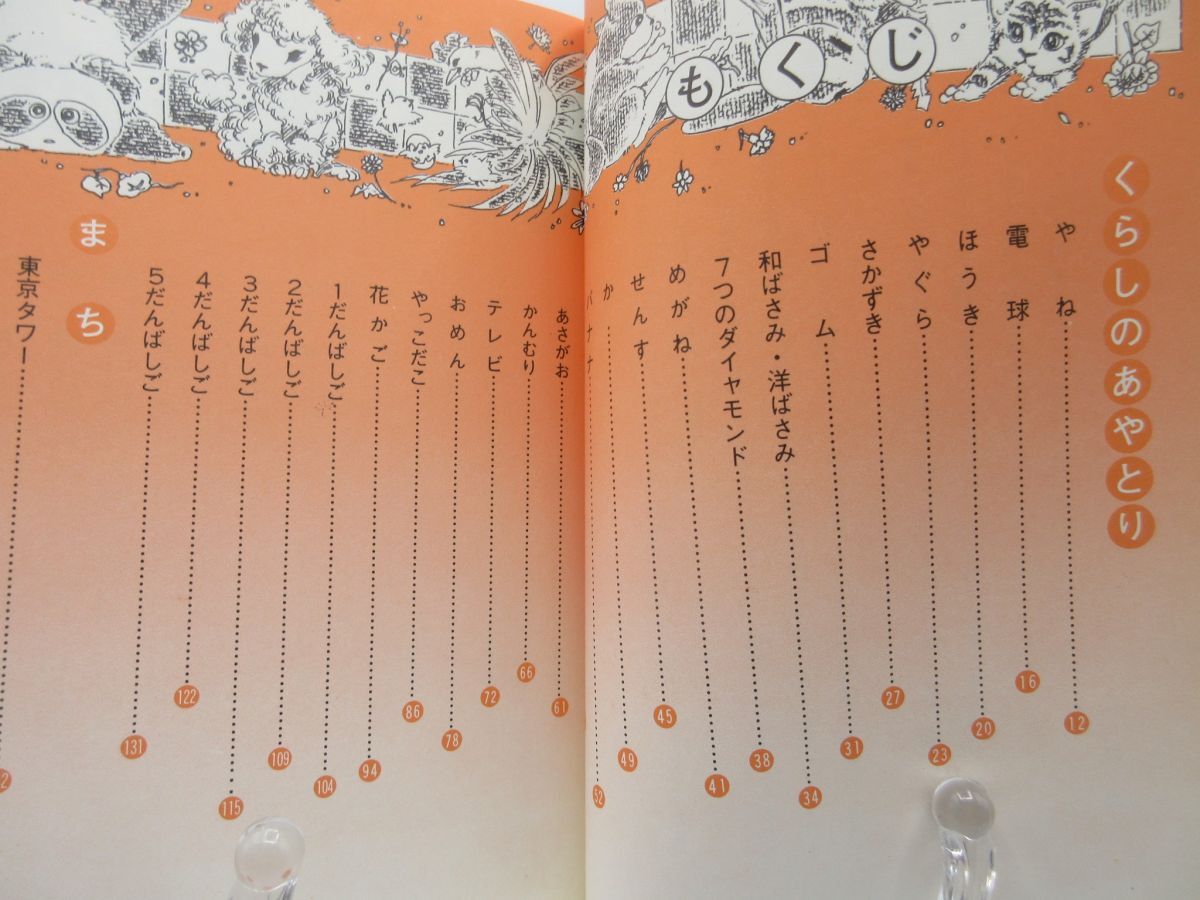 もくじ
くらしのあやとり
やね……12
電球……16
ほうき……20
やぐら……23
さかずき……27
ゴム……31
和ばさみ・洋ばさみ……34
7つのダイヤモンド……38
めがね……41
せんす……45
か……49
バナナ……52
あさがお……61
かんむり……66
テレビ……72
おめん……78
やっこだこ……86
花かご……94
1だんばしご……104
2だんばしご……109
3だんばしご……115
4だんばしご……122
5だんばしご……131
まち
東京タワー……